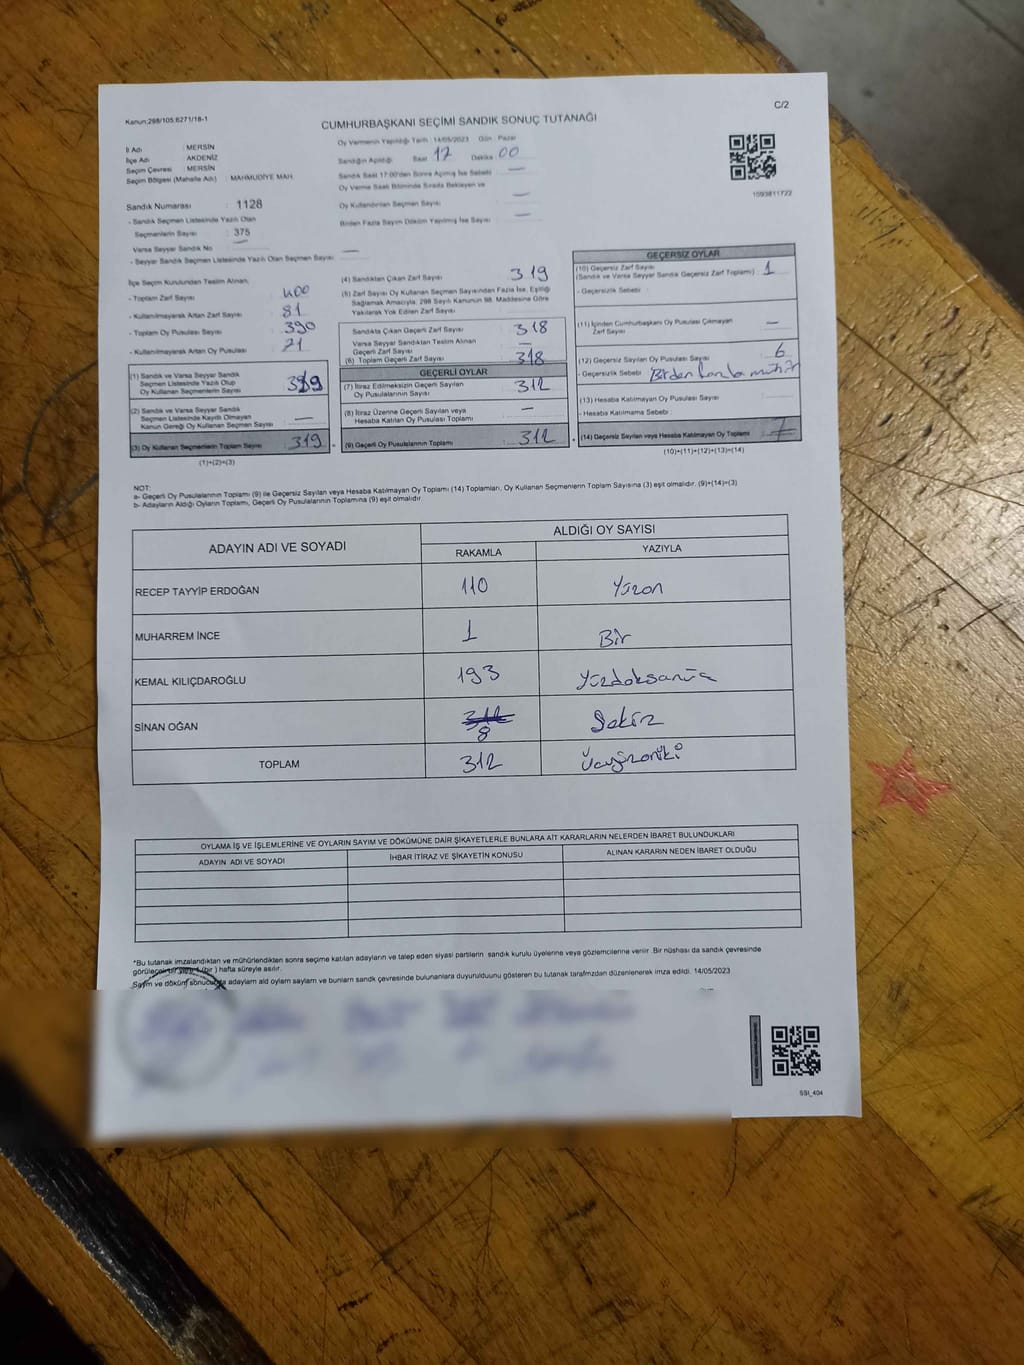 Kanun:298/105;6271/18-1
C/2
CUMHURBAŞKANI SEÇİMİ SANDIK SONUÇ TUTANAĞI
İl Adı : MERSİN
İlçe Adı : AKDENİZ
Seçim Çevresi : MERSİN
Seçim Bölgesi (Mahalle Adı) : MAHMUDİYE MAH.
Sandık Numarası : 1128
- Sandık Seçmen Listesinde Yazılı Olan
Seçmenlerin Sayısı : 375
Varsa Seyyar Sandık No —
- Seyyar Sandık Seçmen Listesinde Yazılı Olan Seçmen Sayısı —
Oy Vermenin Yapıldığı Tarih : 14/05/2023 Gün : Pazar
Sandığın Açıldığı Saat 17 Dakika 00
Sandık Saat 17:00'den Sonra Açılmış İse Sebebi —
Oy Verme Saati Bitiminde Sırada Bekleyen ve
Oy Kullandırılan Seçmen Sayısı —
Birden Fazla Sayım Döküm Yapılmış İse Sayısı —
1093811722
İlçe Seçim Kurulundan Teslim Alınan,
- Toplam Zarf Sayısı 400
- Kullanılmayarak Artan Zarf Sayısı 81
- Toplam Oy Pusulası Sayısı 390
- Kullanılmayarak Artan Oy Pusulası 71
(1) Sandık ve Varsa Seyyar Sandık
Seçmen Listesinde Yazılı Olup
Oy Kullanan Seçmenlerin Sayısı 319
(2) Sandık ve Varsa Seyyar Sandık
Seçmen Listesinde Kaydı Olmayan
Kanun Gereği Oy Kullanan Seçmen Sayısı —
(3) Oy Kullanan Seçmenlerin Toplam Sayısı 319
(1)+(2)=(3)
(4) Sandıktan Çıkan Zarf Sayısı 319
(5) Zarf Sayısı Oy Kullanan Seçmen Sayısından Fazla İse, Eşitliği
Sağlamak Amacıyla; 298 Sayılı Kanunun 98. Maddesine Göre
Yakılarak Yok Edilen Zarf Sayısı
Sandıkta Çıkan Geçerli Zarf Sayısı 318
Varsa Seyyar Sandıktan Teslim Alınan
Geçerli Zarf Sayısı —
(6) Toplam Geçerli Zarf Sayısı 318
GEÇERLİ OYLAR
(7) İtiraz Edilmeksizin Geçerli Sayılan
Oy Pusulalarının Sayısı 312
(8) İtiraz Üzerine Geçerli Sayılan veya
Hesaba Katılan Oy Pusulası Toplamı —
(9) Geçerli Oy Pusulalarının Toplamı 312
GEÇERSİZ OYLAR
(10) Geçersiz Zarf Sayısı
(Sandık ve Varsa Seyyar Sandık Geçersiz Zarf Toplamı) 1
- Geçersizlik Sebebi :
(11) İçinden Cumhurbaşkanı Oy Pusulası Çıkmayan
Zarf Sayısı —
(12) Geçersiz Sayılan Oy Pusulası Sayısı 6
- Geçersizlik Sebebi Birden fazla mühür
(13) Hesaba Katılmayan Oy Pusulası Sayısı
- Hesaba Katılmama Sebebi
(14) Geçersiz Sayılan veya Hesaba Katılmayan Oy Toplamı 7
(10)+(11)+(12)+(13)=(14)
NOT:
a- Geçerli Oy Pusulalarının Toplamı (9) ile Geçersiz Sayılan veya Hesaba Katılmayan Oy Toplamı (14) Toplamları, Oy Kullanan Seçmenlerin Toplam Sayısına (3) eşit olmalıdır. (9)+(14)=(3)
b- Adayların Aldığı Oyların Toplamı, Geçerli Oy Pusulalarının Toplamına (9) eşit olmalıdır.
ADAYIN ADI VE SOYADI
ALDIĞI OY SAYISI
RAKAMLA YAZIYLA
RECEP TAYYİP ERDOĞAN 110 Yüzon
MUHARREM İNCE 1 Bir
KEMAL KILIÇDAROĞLU 193 Yüzdoksanüç
SİNAN OĞAN 312 8 Sekiz
TOPLAM 312 Üçyüzoniki
OYLAMA İŞ VE İŞLEMLERİNE VE OYLARIN SAYIM VE DÖKÜMÜNE DAİR ŞİKAYETLERLE BUNLARA AİT KARARLARIN NELERDEN İBARET BULUNDUKLARI
ADAYIN ADI VE SOYADI İHBAR İTİRAZ VE ŞİKAYETİN KONUSU ALINAN KARARIN NEDEN İBARET OLDUĞU
*Bu tutanak imzalandıktan ve mühürlendikten sonra seçime katılan adayların ve talep eden siyasi partilerin sandık kurulu üyelerine veya gözlemcilerine verilir. Bir nüshası da sandık çevresinde
görülecek bir yere 1 (bir) hafta süreyle asılır.
Sayım ve döküm sonucunda adayların aldığı oyların sayıları ve bunların sandık çevresinde bulunanlara duyurulduğunu gösteren bu tutanak tarafımızdan düzenlenerek imza edildi. 14/05/2023
SSI_404